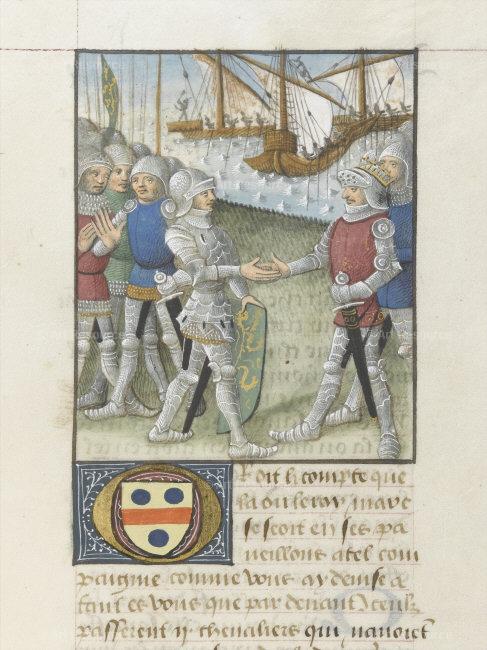 Or dit li compte que
la ou le roy marc
se seoit en ses pa
ueillons a tel com
paignie comme vous ay deuise a
tant es vous que par deuant iceulz
passerent ij cheualiers qui nauoiet